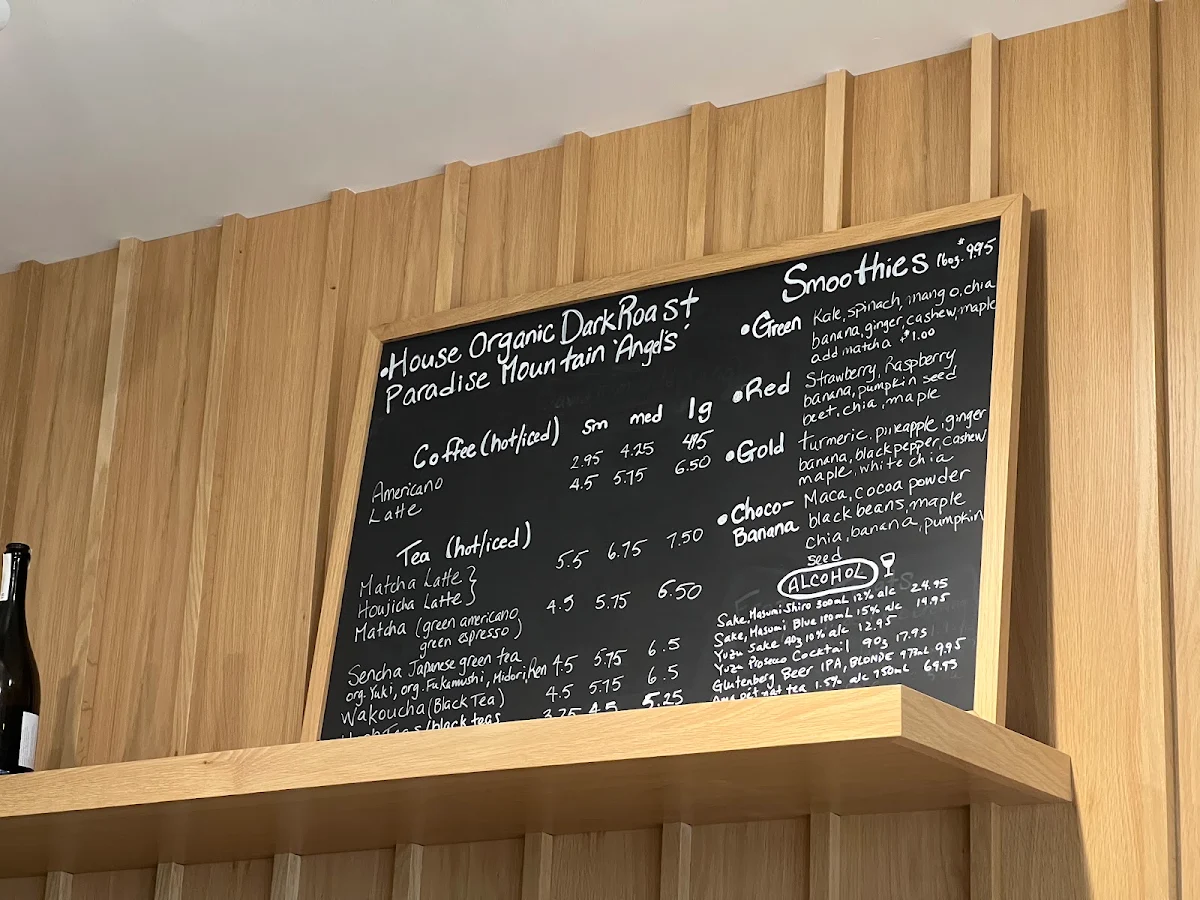 •House Organic Dark Roast
Paradise Mountain 'Angel's'
Coffee (hot/iced) sm med lg
Americano 2.95 4.25 4.95
Latte 4.5 5.75 6.50
Tea (hot/iced)
Matcha Latte }
Houjicha Latte } 5.5 6.75 7.50
Matcha (green americano
green espresso) 4.5 5.75 6.50
Sencha Japanese green tea
org. Yuki, org. Fukamushi, Midori, Ren 4.5 5.75 6.5
Wakoucha (Black Tea) 4.5 5.75 6.5
Teas/black teas 3.75 4.5 5.25
Smoothies 16oz. $9.95
•Green Kale, spinach, mango, chia
banana, ginger, cashew, maple
add matcha +$1.00
•Red Strawberry, Raspberry
banana, pumpkin seed
beet, chia, maple
•Gold turmeric, pineapple, ginger
banana, black pepper, cashew
maple, white chia
•Choco-
Banana Maca, cocoa powder
black beans, maple
chia, banana, pumpkin
seed
ALCOHOL
Sake, Masumi Shiro 300mL 12% alc 24.95
Sake, Masumi Blue 180mL 15% alc 14.95
Yuzu Sake 4oz 10% alc 12.95
Yuzu Prosecco Cocktail 9oz 17.95
Glutenberg Beer IPA, BLONDE 473mL 9.95
pét nat tea 1.5% alc 750mL 69.95